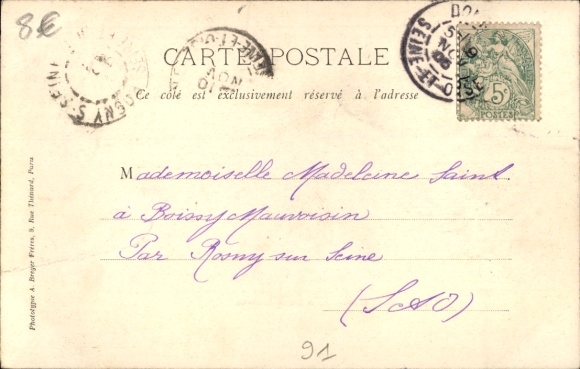 8€
CARTE POSTALE
Ce côté est exclusivement réservé à l'adresse
5c
POSTES
SEINE-ET-O
ROSNY-S-SEINE
Mademoiselle Madeleine Saint
à Boissy Mauvoisin
Par Rosny sur Seine
(S&O)
Phototypie A. Breger Frères, 9, Rue Thénard, Paris
91